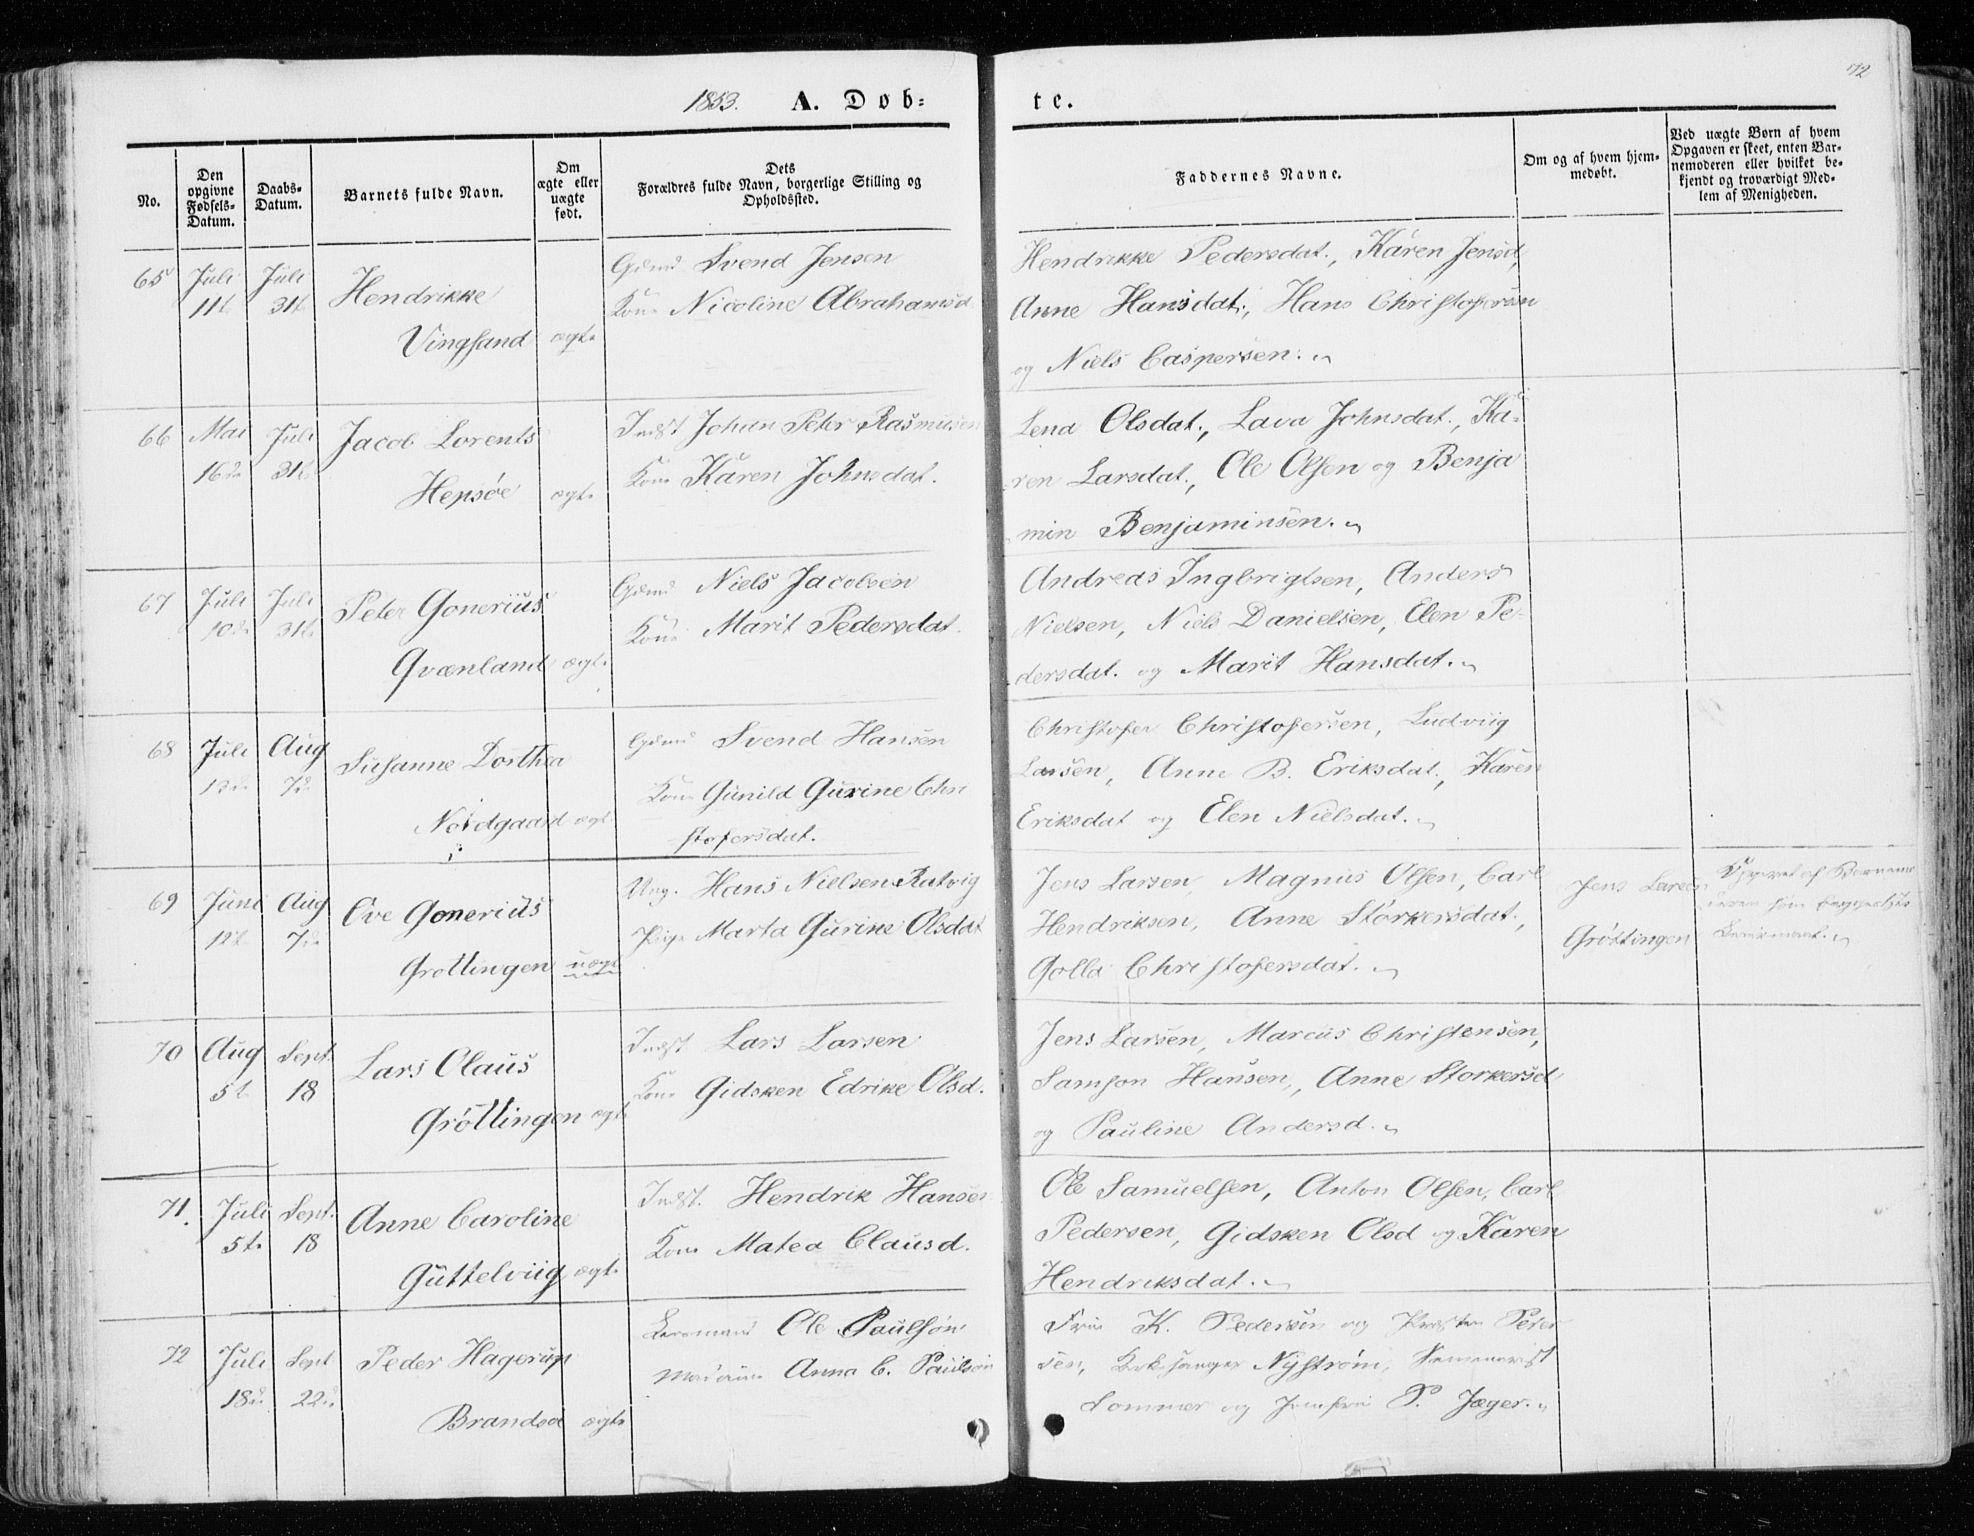 72
1853. A. Døb=
te.
No.
Den opgivne Fødsels-Datum.
Daabs-Datum.
Barnets fulde Navn.
Om ægte eller uægte født.
Dets Forældres fulde Navn, borgerlige Stilling og Opholdssted.
Faddernes Navne.
Om og af hvem hjemmedøbt.
Ved uægte Børn af hvem Opgaven er skeet, enten Barnemoderen eller hvilket bekjendt og troværdigt Medlem af Menigheden.
65 Juli 11t Juli 31t Hendrikke
Vingsand ægte
Gdmd Svend Jensen
Kone Nicoline Abrahamsd
Hendrikke Pedersdat., Karen Jensd,
Anne Hansdat., Hans Christofersen
og Niels Caspersen.
66 Mai 16de Juli 31t Jacob Lorents
Hepsøe ægte
Indst Johan Peter Rasmusen
Kone Karen Johnsdat.
Lena Olsdat., Lava Johnsdat., Ka-
ren Larsdat., Ole Olsen og Benja
min Benjaminsen.
67 Juli 10de Juli 31te Peter Gonerius
Qvænland ægte
Gdmd Niels Jacobsen
Kone Marit Pedersdat.
Andreas Ingbrigtsen, Anders
Nielsen, Niels Danielsen, Elen Pe-
dersdat. og Marit Hansdat.
68 Juli Aug 7de Susanne Dorthea
Nordgaard ægt
Gdmd Svend Hansen
Kone Gunild Gurine Chri
stofersdat.
Christofer Christofersen, Ludviig
Larsen, Anne B. Eriksdat., Karen
Eriksdat og Elen Nielsdat.
69 Juni 12t Aug 7de Ove Gonerius
Grøttingen uægt
Ung. Hans Nielsen Ratvig
Pige Marta Gurine Olsdat
Jens Larsen, Magnus Olsen, Carl
Hendriksen, Anne Størkersdat.,
Golla Christofersdat.
Jens Larsen
Grøttingen
af Barnemo
70 Aug 5t Sept. 18 Lars Olaus
Grøttingen ægte
Indst. Lars Larsen
Kone Gidsken Edrike Olsd.
Jens Larsen, Marcus Christensen,
Samson Hansen, Anne Storkersd
og Pauline Andersd.
71. Juli 5te Sept. 18 Anne Caroline
Guttelviig ægte
Indst. Hendrik Hansen
Kone Matea Clausd.
Ole Samuelsen, Anton Olsen, Carl
Pedersen, Gidsken Olsd og Karen
Hendriksdat.
72 Juli 18de Sept 22de Peder Hagerup
Brandsø ægte
Ole Paulsøn
Madame Anna C. Paulsøn
Frue K. Pedersen og Peter
sen, Kirkesanger Nystrøm, Seminarist
Sommer og Jomfru P. Jæger.